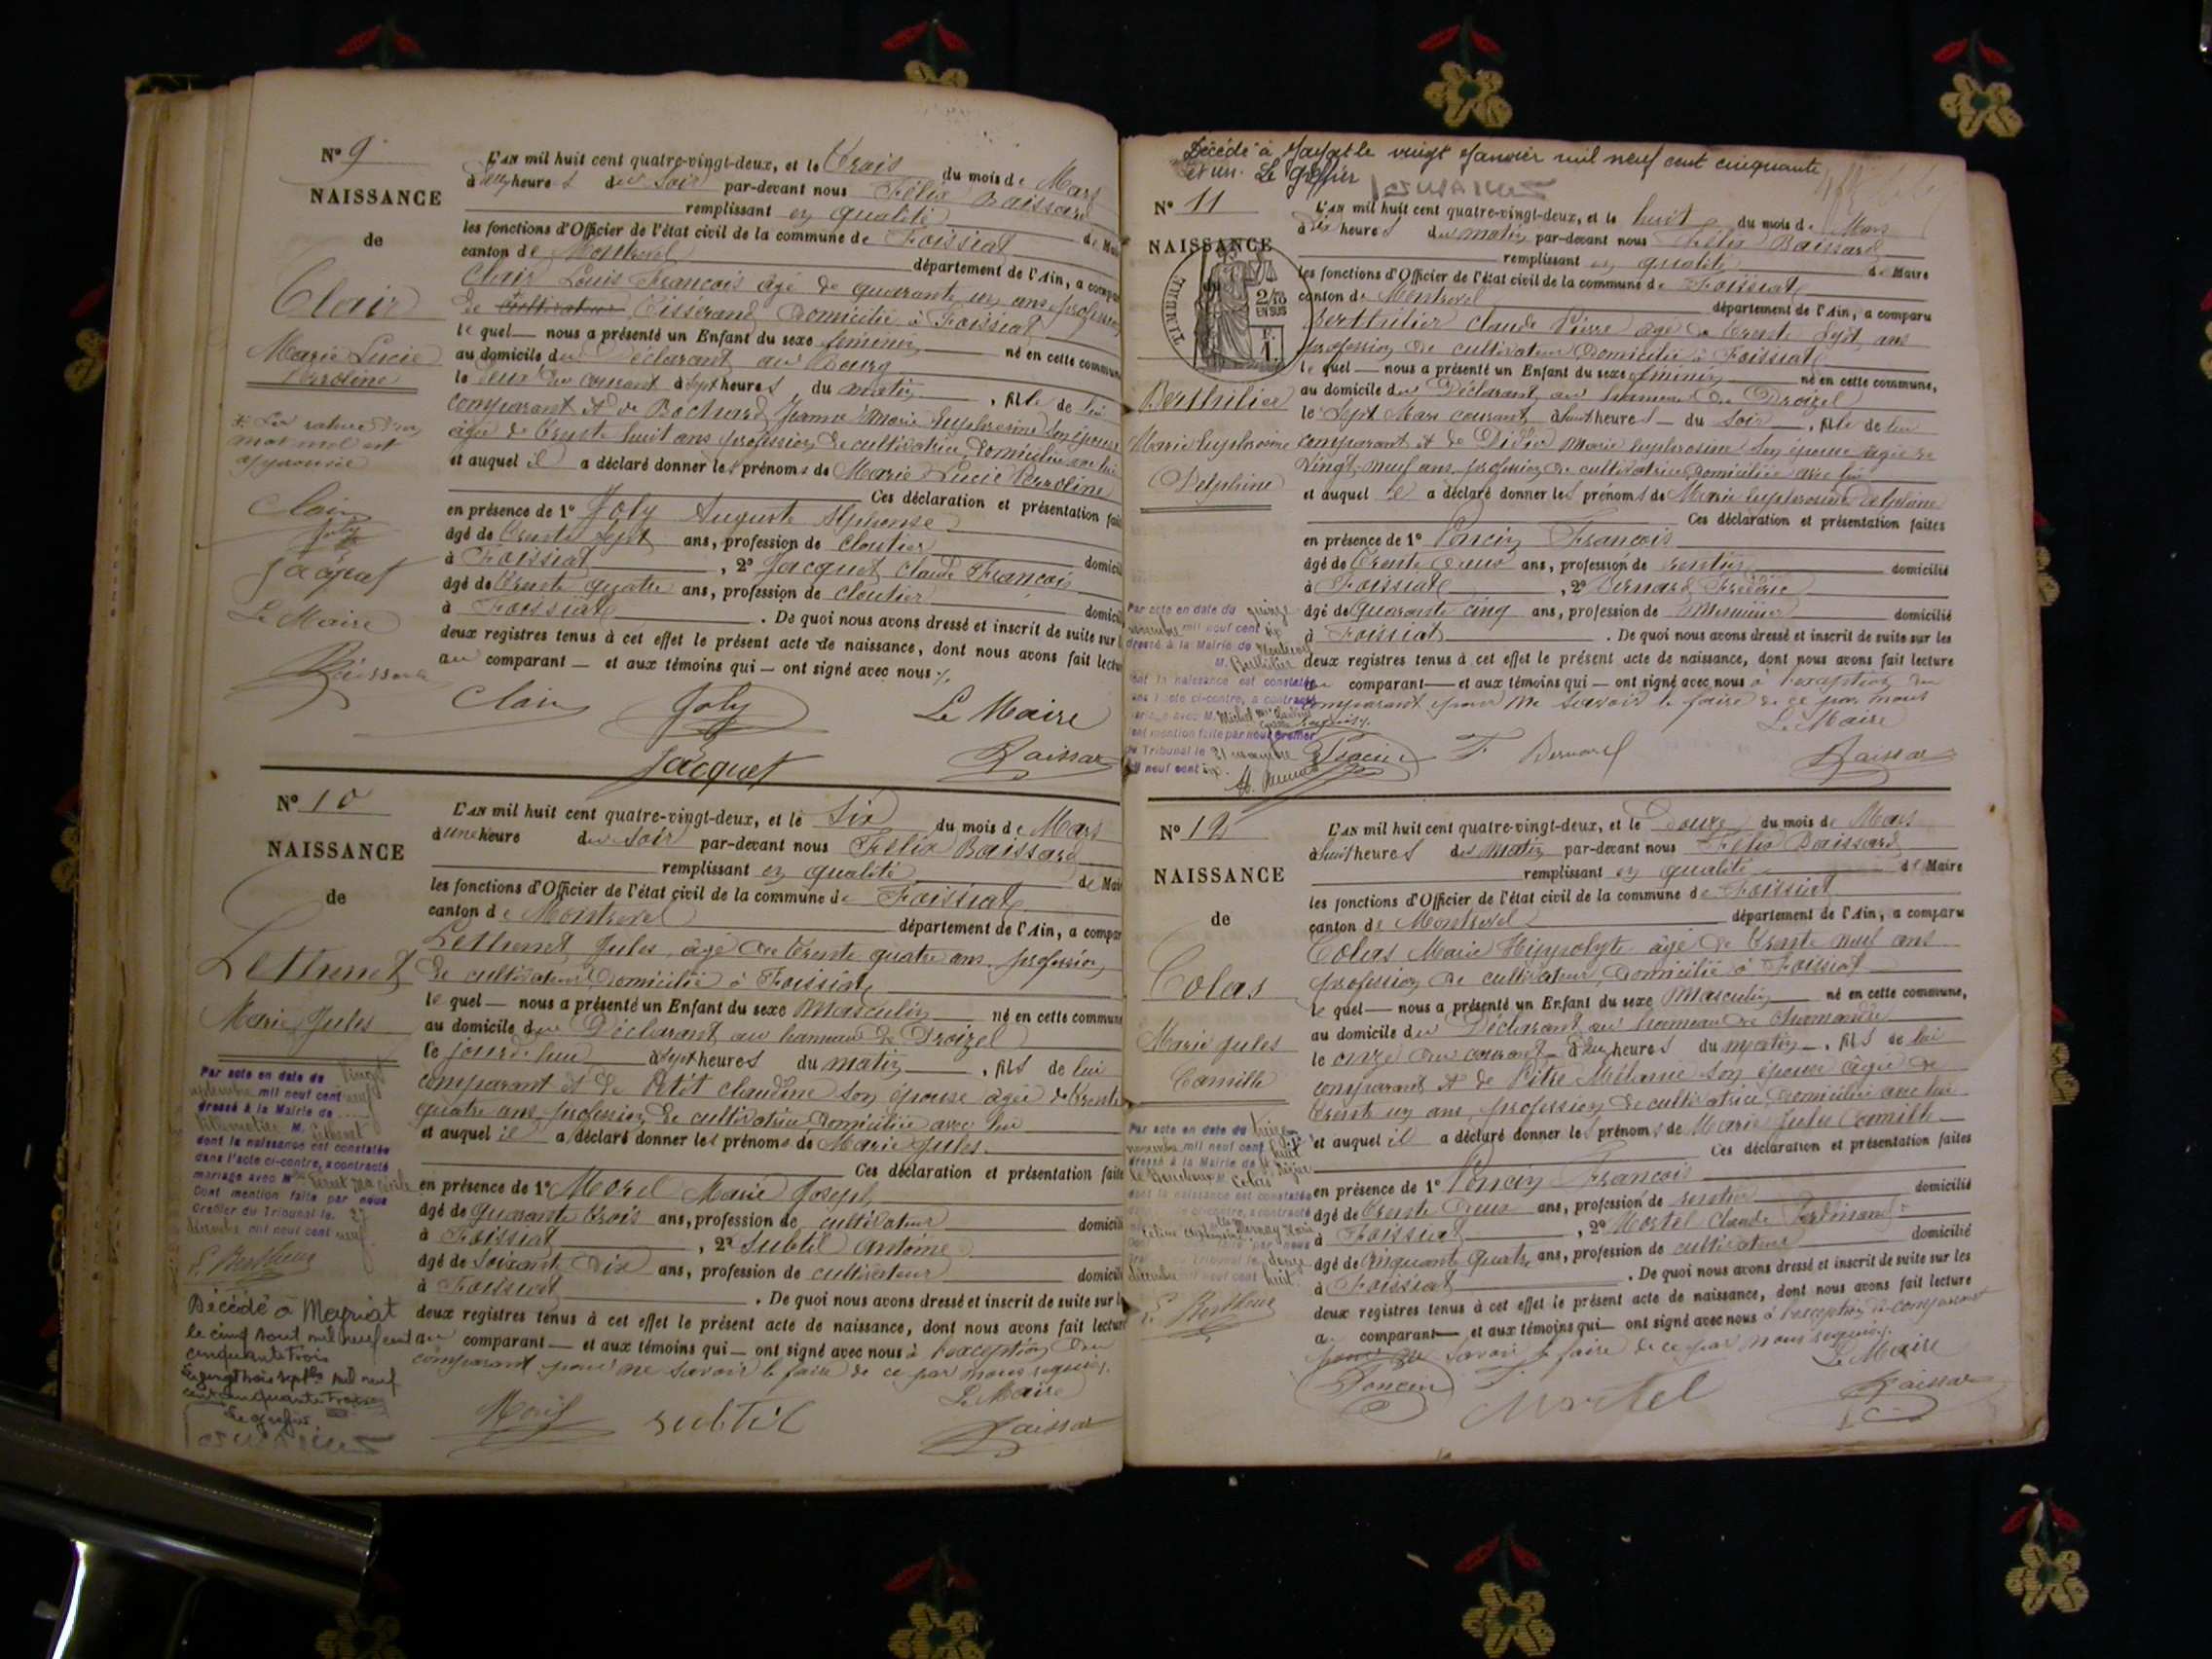 N° 9
NAISSANCE
de
Clair
Marie Lucie
Perroline
mot nul est
approuvée
Clair
Joly
Jacquet
Le Maire
Baissard
L'AN mil huit cent quatre-vingt-deux, et le Trois du mois de Mars
à heures du Soir par-devant nous Félix Baissard
remplissant en qualité de Mai
les fonctions d'Officier de l'état civil de la commune de Foissiat
canton de Montrevel département de l'Ain, a compar
Clair Louis François âgé de quarante un ans profession
de cultivateur Tisserand Domicilié à Foissiat
le quel — nous a présenté un Enfant du sexe féminin né en cette commune
au domicile du Déclarant au Bourg
le deux du courant à Sept heures du matin, fille de lui
comparant et de Bochard Jeanne Marie Euphrosine son épouse
âgée de Trente huit ans profession de cultivatrice, domiciliée avec lui
et auquel il a déclaré donner les prénoms de Marie Lucie Perroline
Ces déclaration et présentation fai
en présence de 1° Joly Auguste Alphonse
âgé de Trente Sept ans, profession de cloutier domicil
à Foissiat, 2° Jacquet Claude François
âgé de Trente quatre ans, profession de cloutier domicili
à Foissiat. De quoi nous avons dressé et inscrit de suite sur l
deux registres tenus à cet effet le présent acte de naissance, dont nous avons fait lectu
au comparant — et aux témoins qui — ont signé avec nous
Clair Joly Le Maire
Jacquet Baissard
N° 10
NAISSANCE
de
Lethenet
Marie Jules
Par acte en date du vingt
septembre mil neuf cent neuf
dressé à la Mairie de
M. Lethenet
dont la naissance est constatée
dans l'acte ci-contre, a contracté
mariage avec M
Dont mention faite par nous
Greffier du Tribunal le 27
mil neuf cent neuf
E. Berthoud
Décédé à Meyriat
le cinq août mil neuf cent
cinquante trois
Le vingt trois septbre mil neuf
cent cinquante trois
Le greffier
L'AN mil huit cent quatre-vingt-deux, et le Six du mois de Mars
à une heure du Soir par-devant nous Félix Baissard
remplissant en qualité de Mai
les fonctions d'Officier de l'état civil de la commune de Foissiat
canton de Montrevel département de l'Ain, a compar
Lethenet Jules, âgé de Trente quatre ans, profession
de cultivateur Domicilié à Foissiat
le quel — nous a présenté un Enfant du sexe Masculin né en cette commune
au domicile du Déclarant au hameau de Droizel
le jourd'hui à Sept heures du matin, fils de lui
comparant et de Petit Claudine son épouse âgée de Trente
quatre ans, profession de cultivatrice Domiciliée avec lui
et auquel il a déclaré donner les prénoms de Marie Jules.
Ces déclaration et présentation faite
en présence de 1° Morel Marie Joseph
âgé de quarante trois ans, profession de cultivateur domicili
à Foissiat, 2° Subtil Antoine
âgé de Soixante Dix ans, profession de cultivateur domicili
à Foissiat. De quoi nous avons dressé et inscrit de suite sur l
deux registres tenus à cet effet le présent acte de naissance, dont nous avons fait lectur
au comparant — et aux témoins qui — ont signé avec nous à l'exception du
comparant pour ne savoir le faire de ce par nous requis.
Le Maire
Morel subtil Baissard
Décédé à le vingt Janvier mil neuf cent cinquante
et un. Le Greffier
N° 11
NAISSANCE
TIMBRE
2/10
EN SUS
F.
1.
Berthilier
Marie Euphrosine
Delphine
Par acte en date du quinze
novembre mil neuf cent six
dressé à la Mairie de Montrevel
M. Berthilier
dont la naissance est constatée
dans l'acte ci-contre, a contracté
mariage avec M. Michel
dont mention faite par nous Greffier
du Tribunal le 21 novembre
mil neuf cent six.
L'AN mil huit cent quatre-vingt-deux, et le huit du mois de Mars
à dix heures du matin par-devant nous Félix Baissard
remplissant en qualité de Maire
les fonctions d'Officier de l'état civil de la commune de Foissiat
canton de Montrevel département de l'Ain, a comparu
Berthilier Claude Pierre âgé de Trente Sept ans
profession de cultivateur Domicilié à Foissiat
le quel — nous a présenté un Enfant du sexe féminin né en cette commune,
au domicile du Déclarant au hameau de Droizel
le Sept Mars courant à huit heures — du Soir, fille de lui
comparant et de Didier Marie Euphrosine son épouse âgée de
Vingt-neuf ans, profession de cultivatrice Domiciliée avec lui
et auquel il a déclaré donner les prénoms de Marie Euphrosine Delphine
Ces déclaration et présentation faites
en présence de 1° Poncin François
âgé de Trente Deux ans, profession de rentier domicilié
à Foissiat, 2° Bernard Frédéric
âgé de quarante cinq ans, profession de Menuisier domicilié
à Foissiat. De quoi nous avons dressé et inscrit de suite sur les
deux registres tenus à cet effet le présent acte de naissance, dont nous avons fait lecture
au comparant — et aux témoins qui — ont signé avec nous à l'exception du
comparant pour ne savoir le faire de ce par nous
requis.
Le Maire
Poncin F Bernard Baissard
N° 12
NAISSANCE
de
Colas
Marie Jules
Camille
Par acte en date du treize
novembre mil neuf cent huit
dressé à la Mairie de
M. Colas
dont la naissance est constatée
dans l'acte ci-contre, a contracté
par nous
Tribunal le douze
décembre mil neuf cent huit.
E. Berthoud
L'AN mil huit cent quatre-vingt-deux, et le Douze du mois de Mars
à huit heures du Matin par-devant nous Félix Baissard
remplissant en qualité de Maire
les fonctions d'Officier de l'état civil de la commune de Foissiat
canton de Montrevel département de l'Ain, a comparu
Colas Marie Hippolyte âgé de Trente neuf ans
profession de cultivateur, domicilié à Foissiat
le quel — nous a présenté un Enfant du sexe Masculin né en cette commune,
au domicile du Déclarant au hameau de
le onze du courant à heures du matin, fils de lui
comparant et de Pitre Mélanie son épouse âgée de
Trente un ans, profession de cultivatrice, Domiciliée avec lui
et auquel il a déclaré donner les prénoms de Marie Jules Camille
Ces déclaration et présentation faites
en présence de 1° Poncin François
âgé de Trente Deux ans, profession de rentier domicilié
à Foissiat, 2° Martel Claude Ferdinand
âgé de Cinquante Quatre ans, profession de cultivateur domicilié
à Foissiat. De quoi nous avons dressé et inscrit de suite sur les
deux registres tenus à cet effet le présent acte de naissance, dont nous avons fait lecture
au comparant — et aux témoins qui — ont signé avec nous à l'exception du comparant
pour ne savoir le faire de ce par nous requis.
Le Maire
Poncin F. Martel Baissard